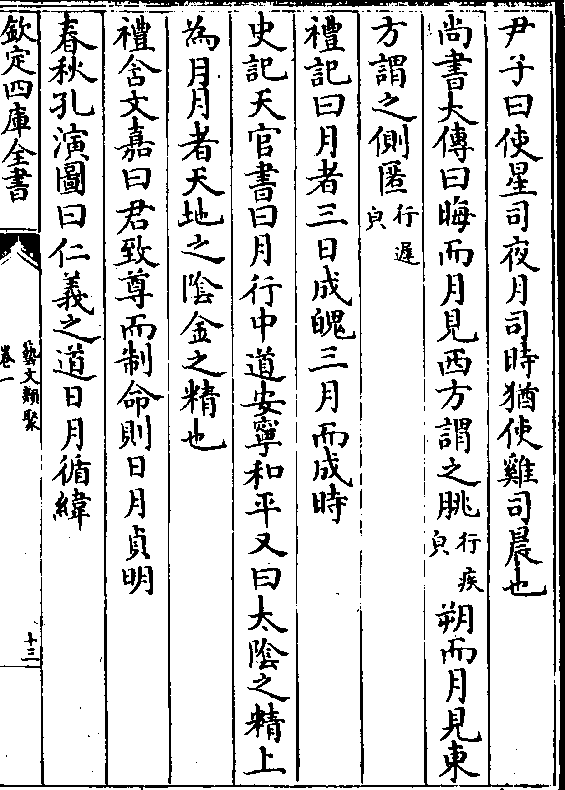 尹子曰使星司夜月司時猶使雞司晨也
尚書大傳曰晦而月見西方謂之朓行疾貞朔而月見東
方謂之側匿行遲貞
禮記曰月者三日成魄三月而成時
史記天官書曰月行中道安寧和平又曰太陰之精上
為月月者天地之陰金之精也
禮含文嘉曰君致尊而制命則日月貞明
春秋孔演圖曰仁義之道日月循緯
欽定四庫全書
藝文類聚
卷一
十三